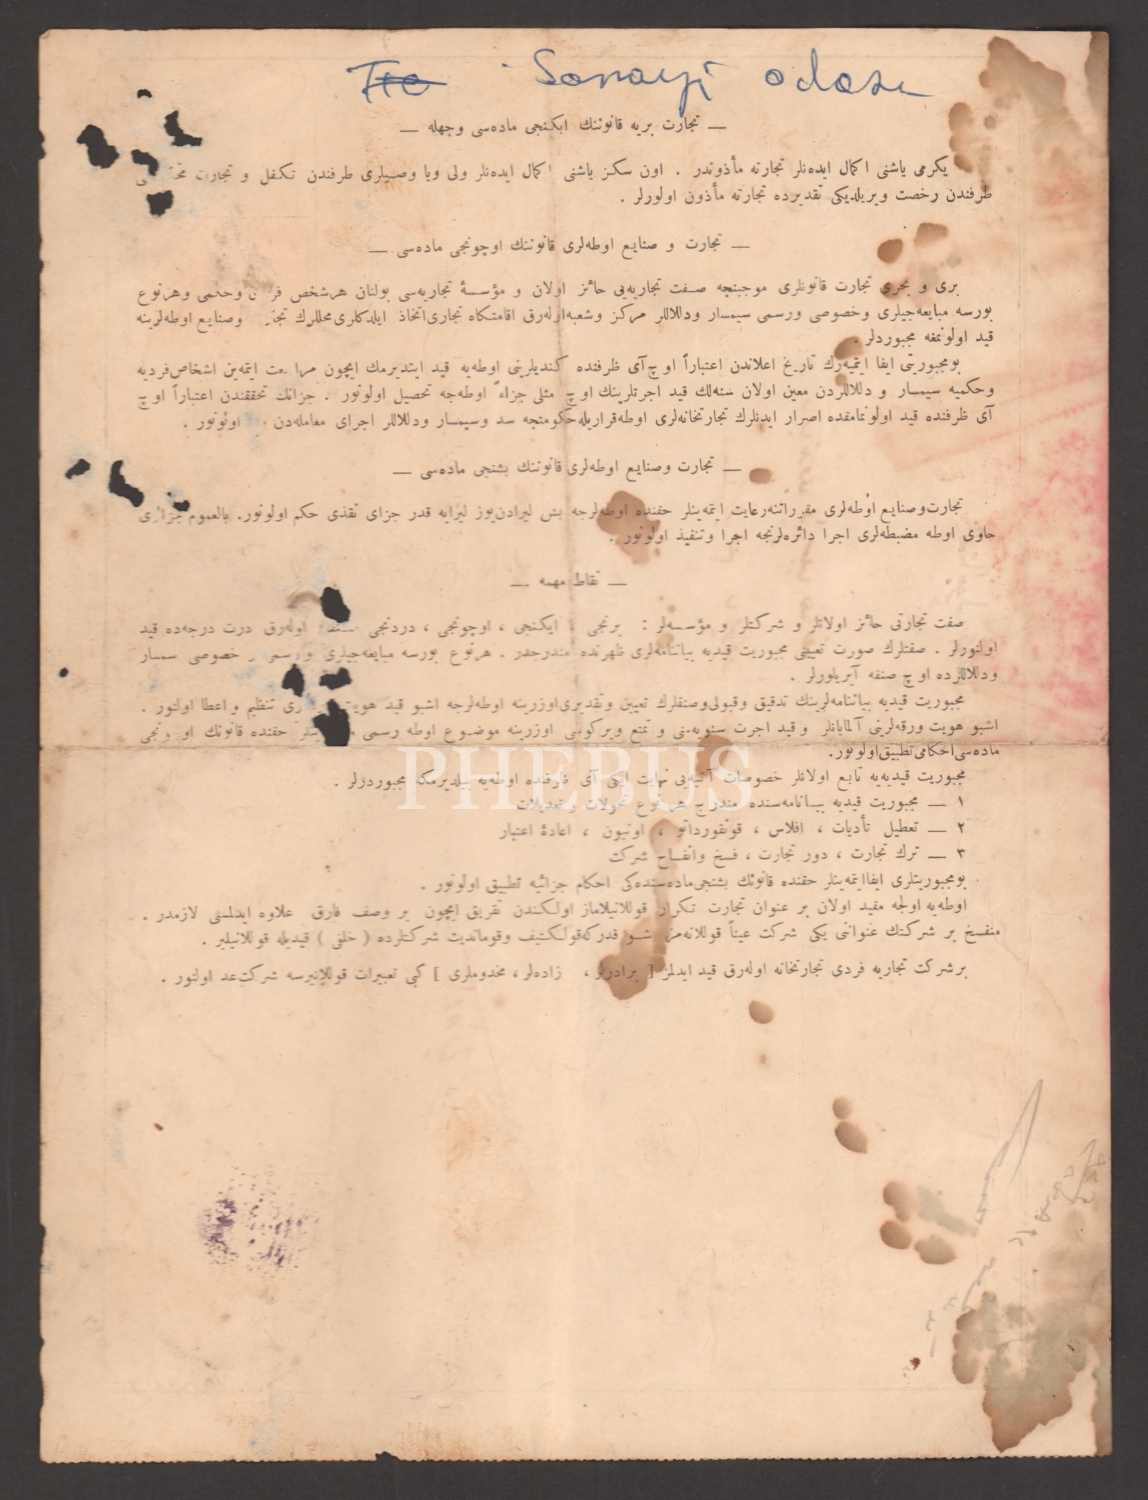 Sanayi odası
— تجارت بریه قانوننك ایكنجی ماده‌سی وجهله —
یكرمی یاشنی اكمال ایده‌نلر تجارته مأذوندر . اون سكز یاشنی اكمال ایده‌نلر ولی ویا وصیلری طرفندن تكفل و تجارت
طرفندن رخصت ویریلدیكی تقدیرده تجارته مأذون اولورلر .
— تجارت و صنایع اوطه‌لری قانوننك اوچونجی ماده‌سی —
بری و بحری تجارت قانونلری موجبنجه صفت تجاریه‌یی حائز اولان و مؤسسهٔ تجاریه‌سی بولنان هرشخص وحكمی وهرنوع
بورسه مبایعه‌جیلری وخصوصی ورسمی سیمسار ودلاللر مركز وشعبه‌اوله‌رق اقامتكاه تجاری‌اتخاذ ایلدكلری‌محللرك وصنایع اوطه‌لرینه
قید اولونمغه مجبوردلر .
بومجبوریتی ایفا ایتمیه‌رك تاریخ اعلاندن اعتباراً اوچ‌آی ظرفنده كندیلرینی اوطه‌یه قید ایتدیرمك ایچون ایتمه‌ین اشخاص‌فردیه
وحكمیه سیمسار و دلاللردن معین اولان سنه‌لك قید اجرتلرینك اوچ مثلی جزاءً اوطه‌جه تحصیل اولونور . جزانك تحققندن اعتباراً اوچ
آی ظرفنده قید اولونمامقده اصرار ایدنلرك تجارتخانه‌لری اوطه‌قراریله‌حكومتجه سد وسیمسار ودلاللر اجرای معامله‌دن اولونور .
— تجارت وصنایع اوطه‌لری قانوننك بشنجی ماده‌سی —
تجارت‌وصنایع اوطه‌لری مقرراتنه‌رعایت ایتمه‌ینلر حقنده اوطه‌لرجه بش لیرادن‌یوز لیرایه قدر جزای نقدی حكم اولونور. بالعموم جزائی
حاوی اوطه مضبطه‌لری اجرا دائره‌لرنجه اجرا وتنفیذ اولونور .
— نقاط مهمه —
صفت تجارتی حائز اولانلر و شركتلر و مؤسسه‌لر : برنجی ، ایكنجی ، اوچونجی ، دردنجی اوله‌رق درت درجه‌ده قید
اولنورلر . صنفلرك صورت تعیینی مجبوریت قیدیه بیاننامه‌لری ظهرنده مندرجدر . هرنوع بورسه مبایعه‌جیلری ورسمی و خصوصی سمسار
ودلاللرده اوچ صنفه آیریلورلر .
مجبوریت قیدیه بیاننامه‌لرینك تدقیق وقبولی‌وصنفلرك تعیین وتقدیری‌اوزرینه اوطه‌لرجه اشبو قید هویت تنظیم واعطا اولنور .
اشبو هویت ورقه‌لرینی آلمایانلر وقید اجرت سنویه‌سنی و تمتع ویركوسی اوزرینه موضوع اوطه رسمی حقنده قانونك اوچونجی
ماده‌سی‌احكامی‌تطبیق‌اولونور.
مجبوریت قیدیه‌یه تابع اولانلر خصوصات آتیه‌یی نهایت ایكی آی ظرفنده اوطه‌یه بیلدیرمكه مجبوردرلر .
١ — مجبوریت قیدیه بیاننامه‌سنده مندرج هرنوع تحولات وتعدیلات
٢ — تعطیل تأدیات ، افلاس ، قونقورداتو ، اونیون ، اعادهٔ اعتبار
٣ — ترك تجارت ، دور تجارت ، فسخ وانفساح شركت
بومجبوریتلری ایفاایتمه‌ینلر حقنده قانونك بشنجی‌ماده‌سنده‌كی احكام جزائیه تطبیق اولونور .
اوطه‌یه اولجه مقید اولان بر عنوان تجارت تكرار قوللانیلاماز اولكندن تفریق ایچون بر وصف فارق علاوه ایدلمسی لازمدر .
منفسخ بر شركتك عنواننی یكی شركت عیناً قوللانه‌مز شو قدركه‌قولكتیف وقوماندیت شركتلرده ( خلفی ) قیدیله قوللانیلیر .
برشركت تجاریه فردی تجارتخانه اوله‌رق قید ایدلمز [ برادرلر ، زاده‌لر، مخدوملری ] كبی تعبیرات قوللانیرسه شركت‌عد اولنور .
PHEBUS